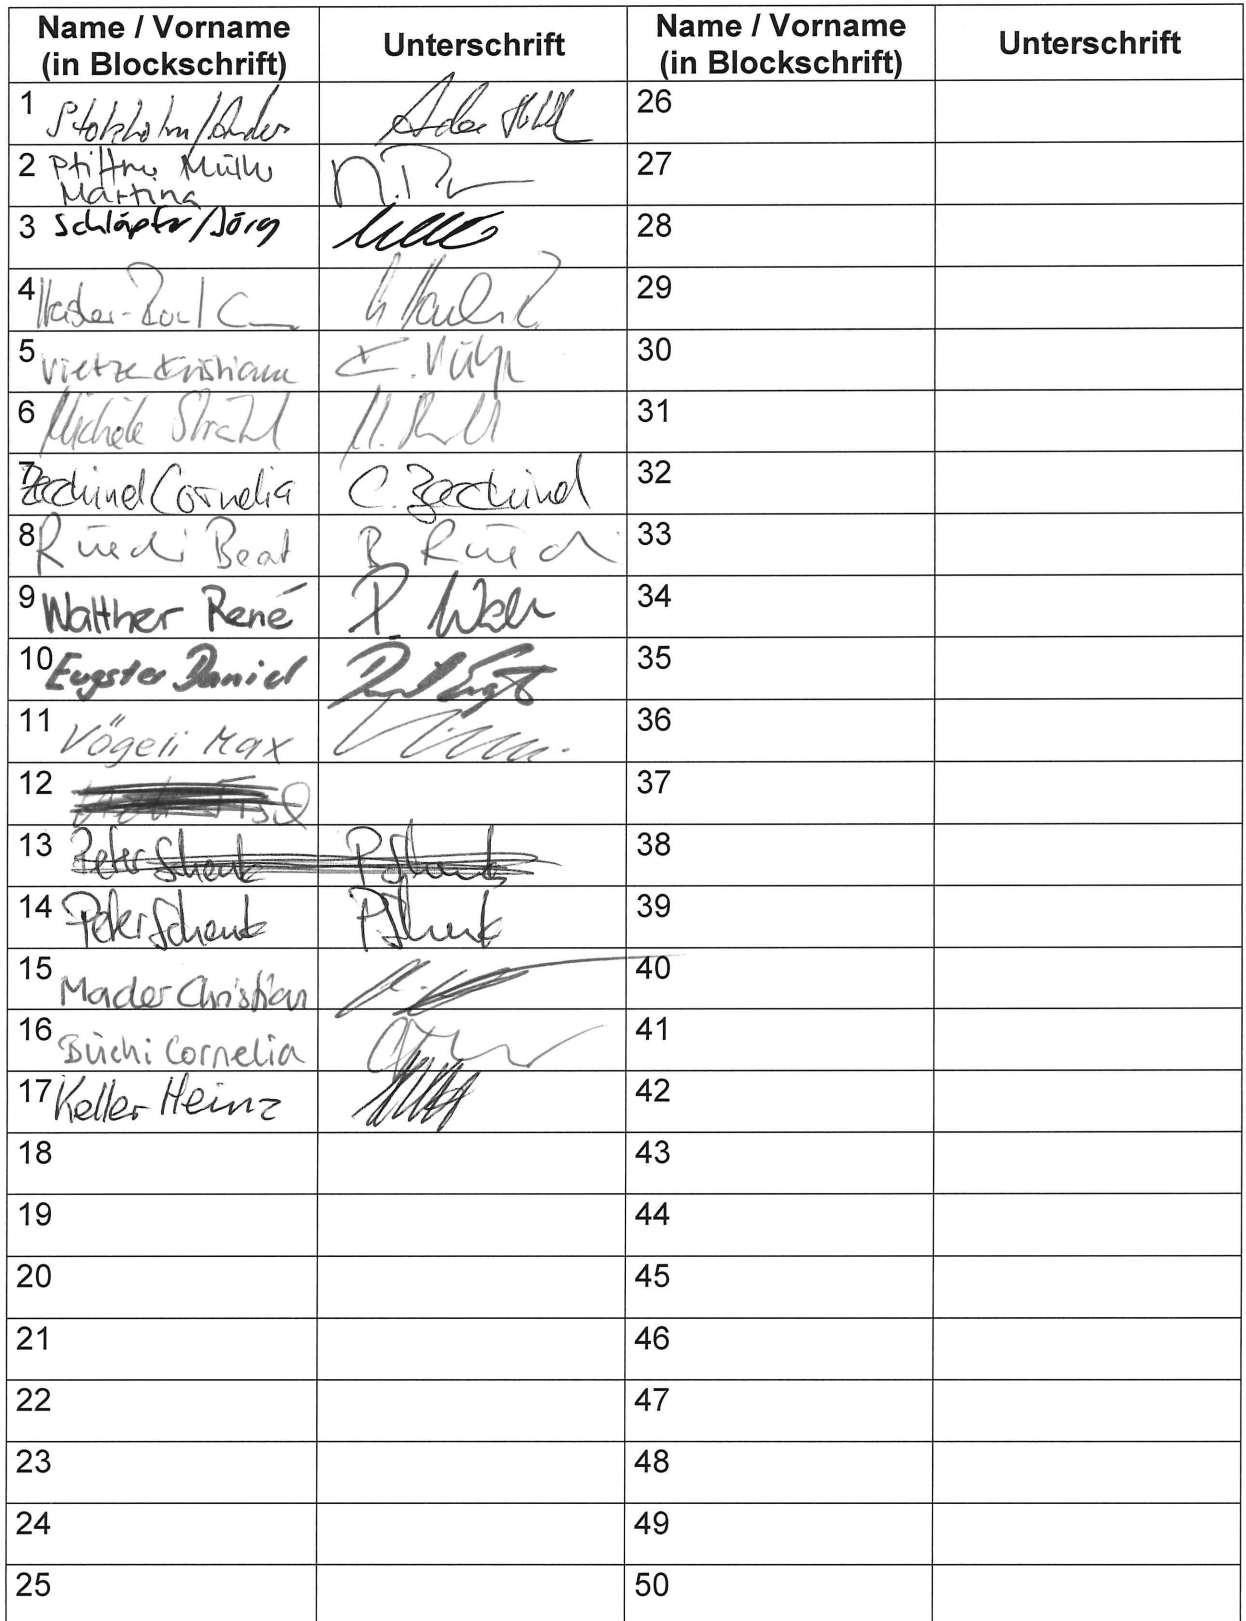 Name / Vorname
(in Blockschrift)
Unterschrift
Name / Vorname
(in Blockschrift)
Unterschrift
1 Stokholm/Anders
26
2 Pfiffner Müller
Martina
27
3 Schläpfer/Jörg
28
4
29
5 Vietze Kristiane
K. Vietze
30
6 Michèle Strähl
M. Strähl
31
7 Zecchinel Cornelia
C. Zecchinel
32
8 Rüedi Beat
B Rüedi
33
9 Walther René
R. Walther
34
10 Eugster Daniel
35
11 Vögeli Max
36
12
37
13 Peter Schenk
P Schenk
38
14 Peter Schenk
P Schenk
39
15 Mader Christian
40
16 Büchi Cornelia
41
17 Keller Heinz
42
18
43
19
44
20
45
21
46
22
47
23
48
24
49
25
50